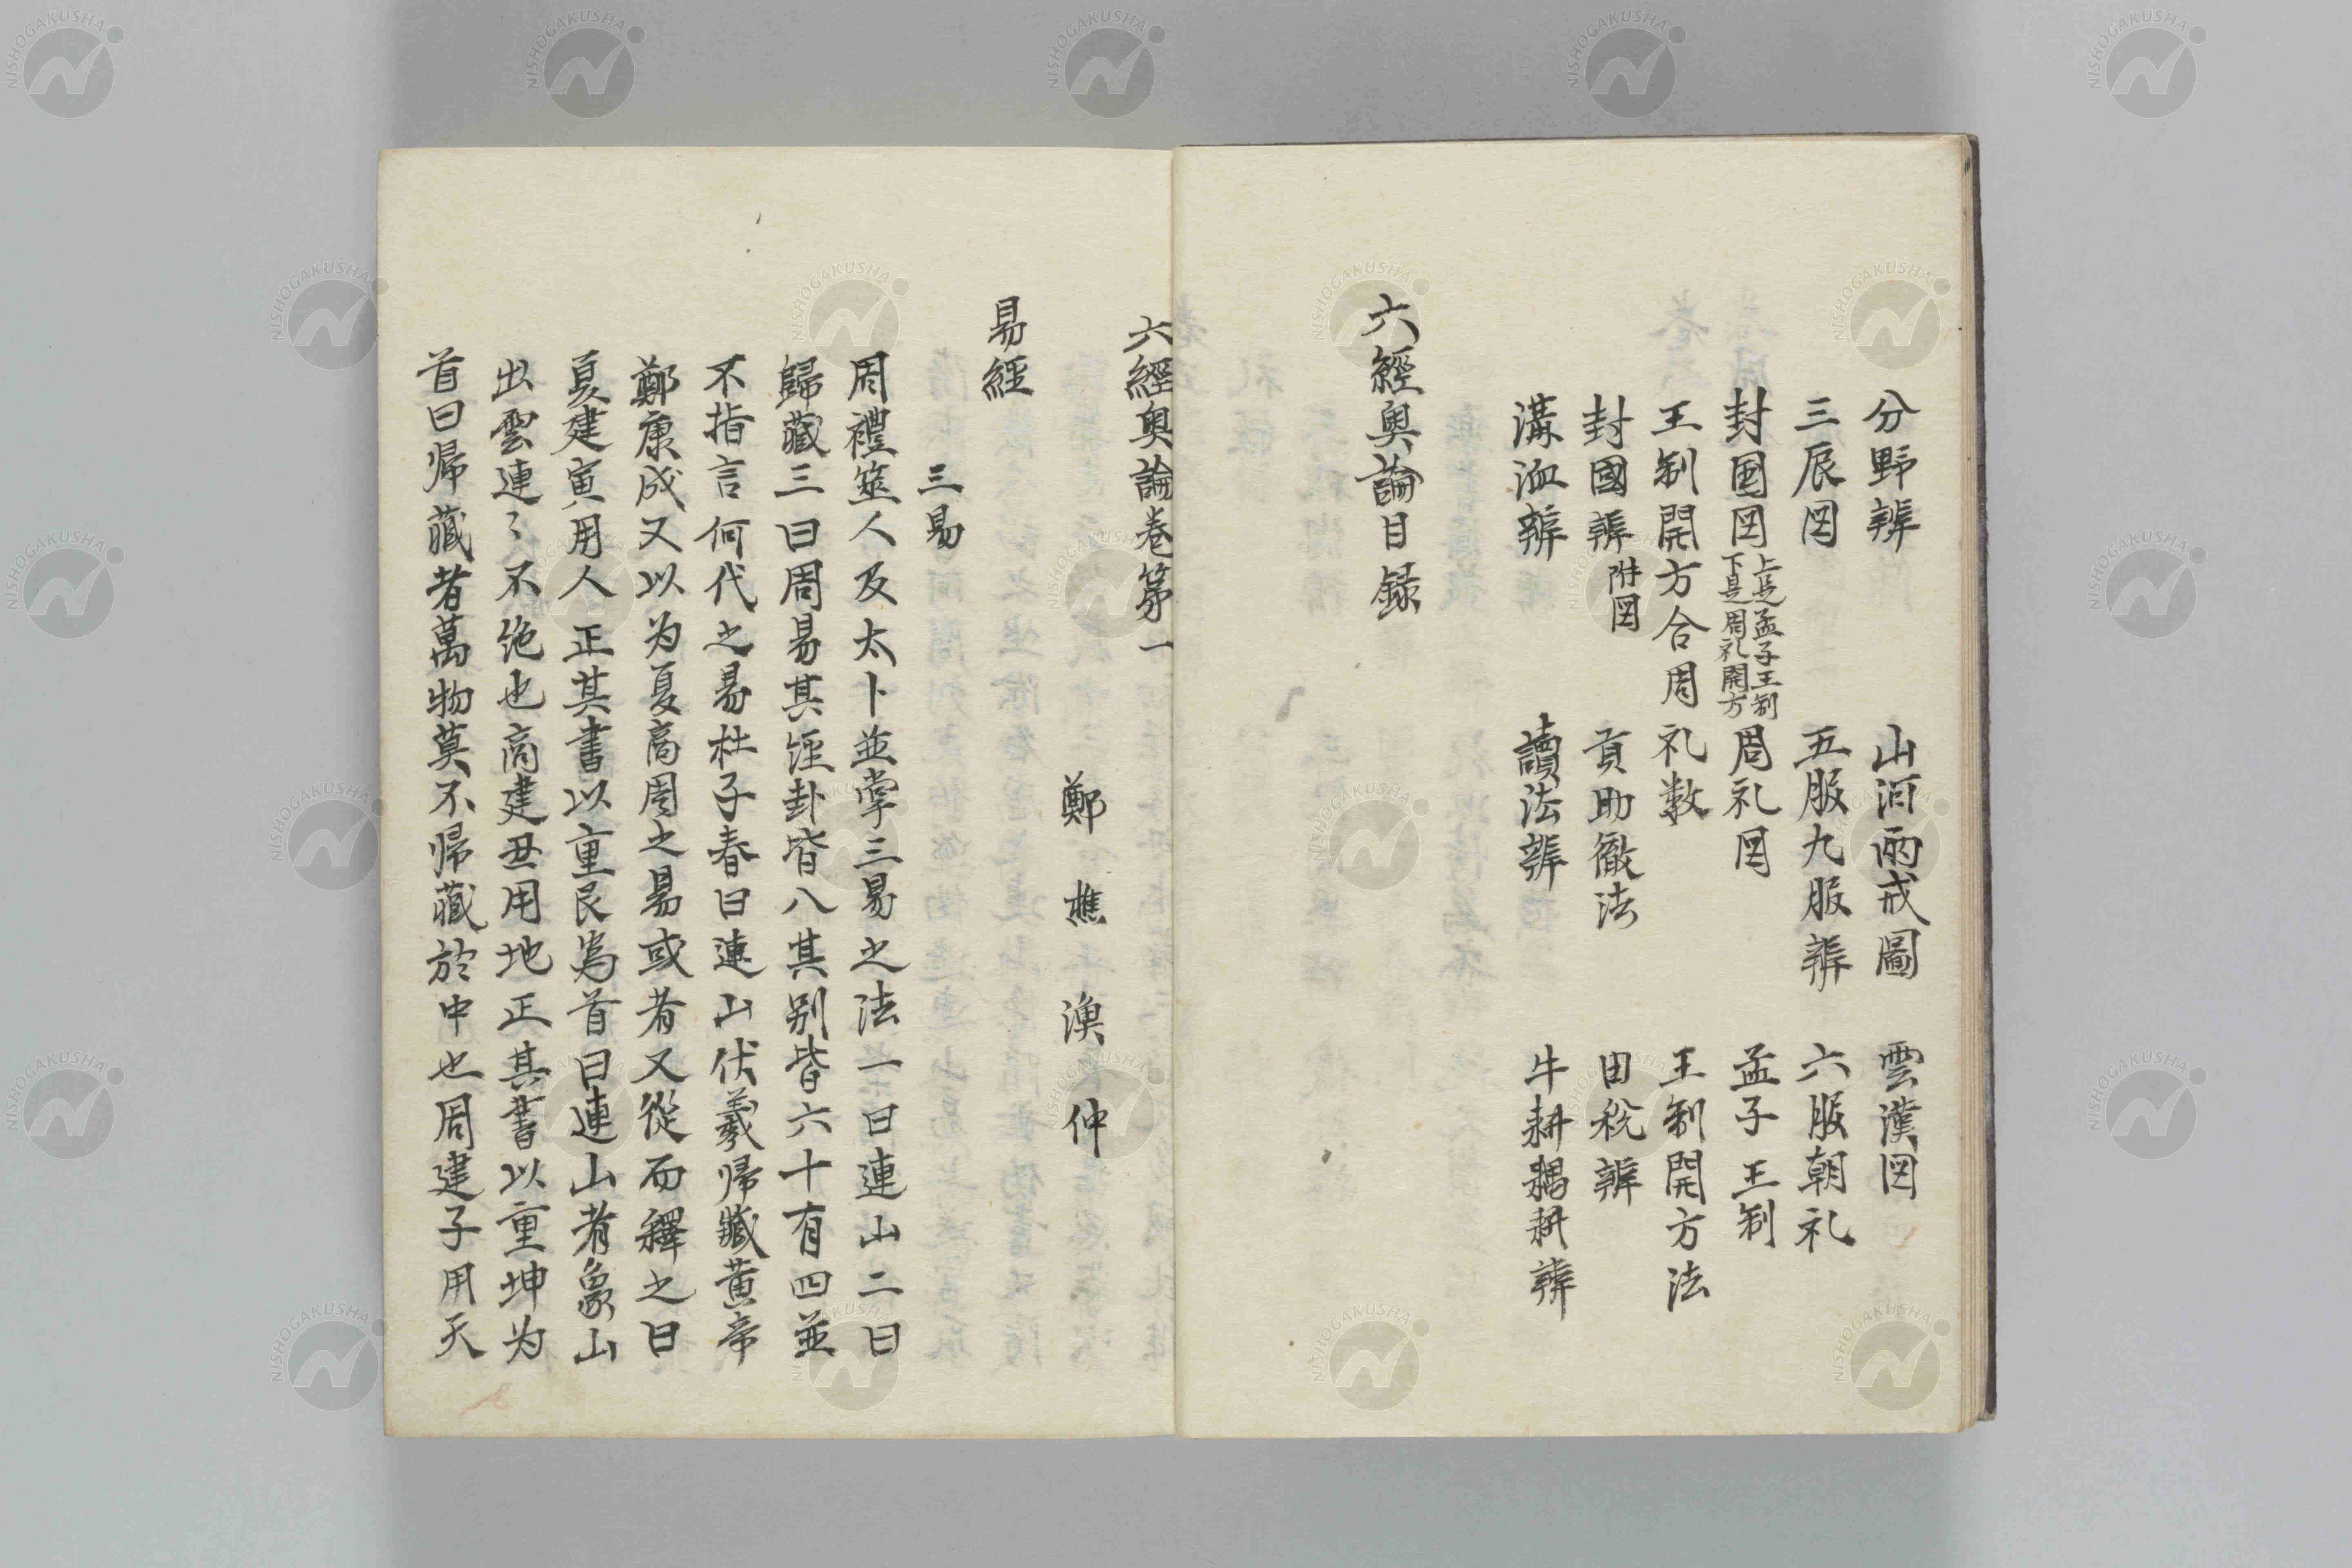 分野辨　山河兩戒圖　雲漢図
三辰図　五服九服辨　六服朝礼
封国図上是孟子王制下是周礼開方　周礼図　孟子王制
王制開方合周礼数　王制開方法
封國辨附図　貢助徹法　田稅辨
溝洫辨　讀法辨　牛耕耦耕辨
六經奥論目録
六經奥論卷第一
鄭樵漁仲
易經
三易
周禮筮人及太卜並掌三易之法一曰連山二曰
歸藏三曰周易其經卦皆八其别皆六十有四並
不指言何代之易杜子春曰連山伏羲帰藏黄帝
鄭康成又以为夏商周之易或者又從而釋之曰
夏建寅用人正其書以重艮為首曰連山者象山
出雲連〻不絶也商建丑用地正其書以重坤为
首曰帰藏者萬物莫不帰藏於中也周建子用天
NISHOGAKUSHA